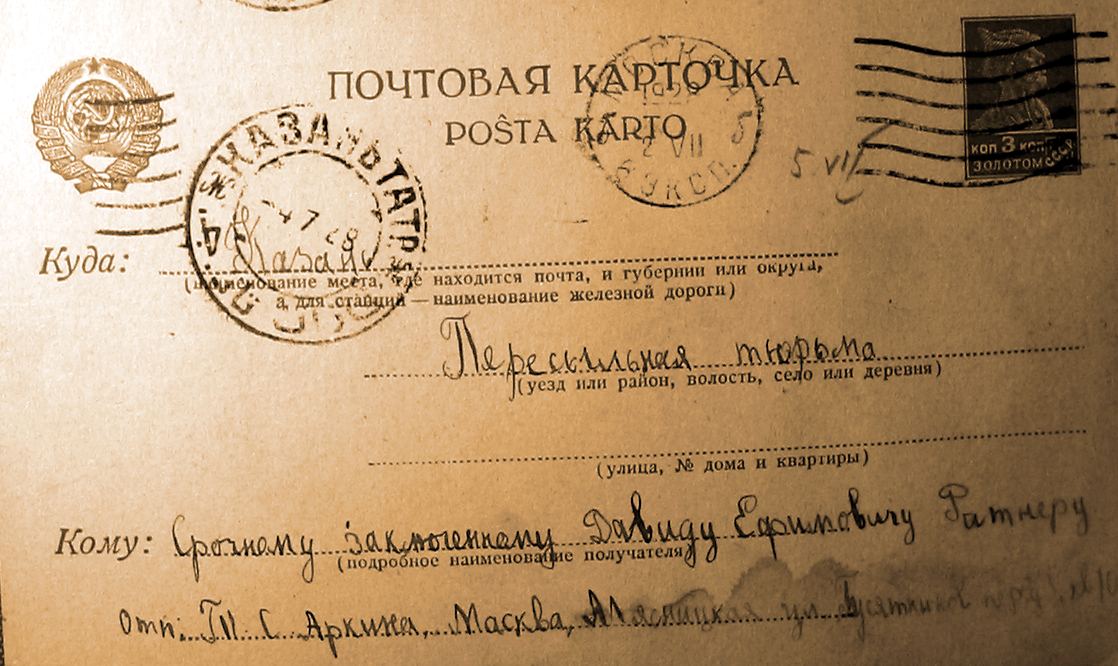 ПОЧТОВАЯ КАРТОЧКА
POŜTA KARTO
МОСКВА
1928
2 VII
5
ЭКСП.
5 VII
коп 3 коп
ЗОЛОТОМ СССР
КАЗАНЬ ТАТР.
4 7 28
Куда: Казань
(наименование места, где находится почта, и губернии или округа,
а для станций — наименование железной дороги)
Пересыльная тюрьма
(уезд или район, волость, село или деревня)
(улица, № дома и квартиры)
Кому: Срочному заключенному Давиду Ефимовичу Ратнеру
(подробное наименование получателя)
Отп: Т. С. Аркина, Москва, Мясницкая ул.